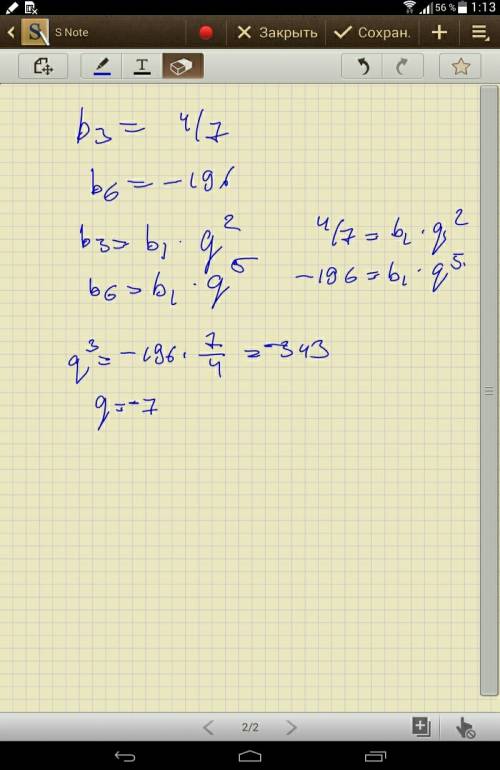 56 % 1:13
S Note Закрыть Сохран.
b₃ = 4/7
b₆ = -196
b₃ = b₁ · q²
b₆ = b₁ · q⁵
4/7 = b₁ · q²
-196 = b₁ · q⁵
q³ = -196 · 7/4 = -343
q = -7
2/2